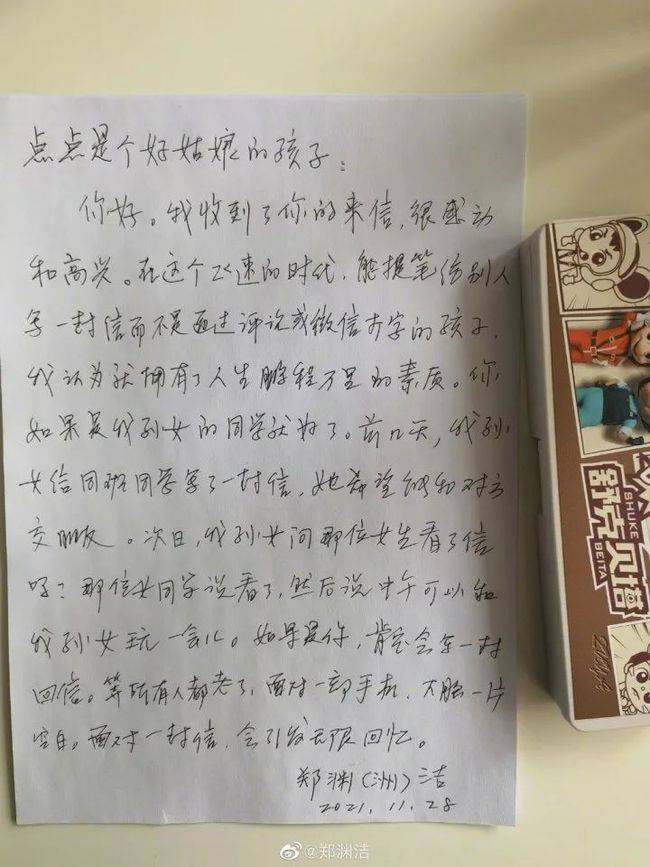 点点是个好姑娘的孩子：
你好。我收到了你的来信，很感动
和高兴。在这个飞速的时代，能提笔给别人
写一封信而不是通过评论或微信打字的孩子，
我认为就拥有了人生鹏程万里的素质。你
如果是我孙女的同学就好了。前几天，我孙
女给同班同学写了一封信，她希望能和对方
交朋友。次日，我孙女问那位女生看了信
吗？那位女同学说看了，然后说中午可以和
我孙女玩一会儿。如果是你，肯定会写一封
回信。等所有人都老了，面对一部手机，大脑一片
空白。面对一封信，会引发无限回忆。
郑渊(洲)洁
2021.11.28
舒克贝塔
SHUKE
BEITA
@郑渊洁